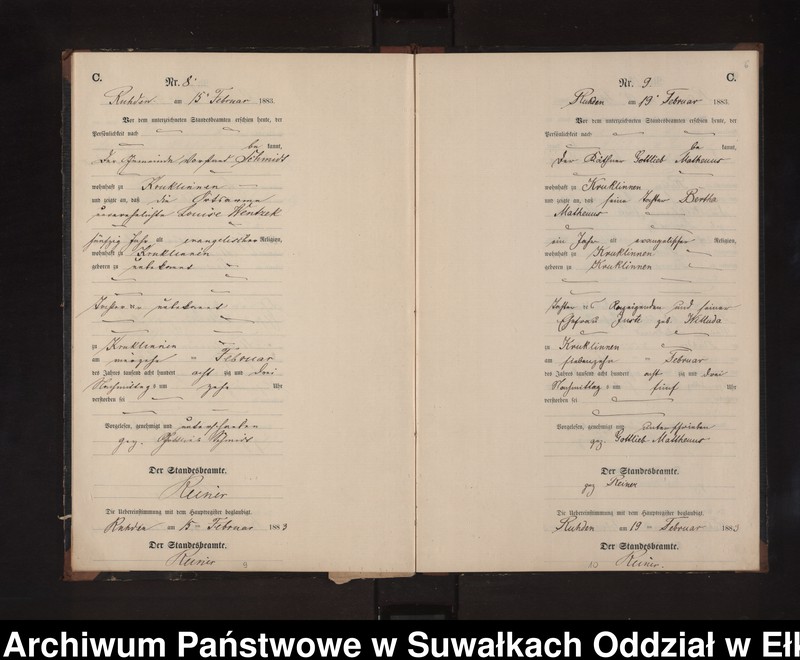 C.
Nr. 8.
Ruhden am 15. Februar 1883.
Vor dem unterzeichneten Standesbeamten erschien heute, der
Persönlichkeit nach
be kannt,
der Gemeinde Vorstand Schmidt
wohnhaft zu Kruklinnen
und zeigte an, daß die Ortsarme
unverehelichte Louise
fünfzig Jahr alt evangelischer Religion,
wohnhaft zu Kruklinnen
geboren zu unbekannt
Tochter unbekannt
zu Kruklinnen
am Februar
des Jahres tausend acht hundert acht zig und drei
Nachmittags um zehn Uhr
verstorben sei
Vorgelesen, genehmigt und unterschrieben
gez. Gottlieb Schmidt
Der Standesbeamte.
Reiner
Die Uebereinstimmung mit dem Hauptregister beglaubigt.
Ruhden am 15 Februar 1883
Der Standesbeamte.
Reiner
9
6
Nr. 9.
C.
Ruhden am 19 Februar 1883.
Vor dem unterzeichneten Standesbeamten erschien heute, der
Persönlichkeit nach
be kannt,
der Käthner Gottlieb Matheuus
wohnhaft zu Kruklinnen
und zeigte an, daß seine Tochter Bertha
Matheuus
ein Jahr alt evangelischer Religion,
wohnhaft zu Kruklinnen
geboren zu Kruklinnen
Tochter des Anzeigenden und seiner
Ehefrau geb.
zu Kruklinnen
am siebenzehn Februar
des Jahres tausend acht hundert acht zig und drei
Nachmittags um fünf Uhr
verstorben sei
Vorgelesen, genehmigt und unterschrieben
gez. Gottlieb Mattheuus
Der Standesbeamte.
gez Reiner
Die Uebereinstimmung mit dem Hauptregister beglaubigt.
Ruhden am 19 Februar 1883
Der Standesbeamte.
Reiner.
10
Archiwum Państwowe w Suwałkach Oddział w Ełk